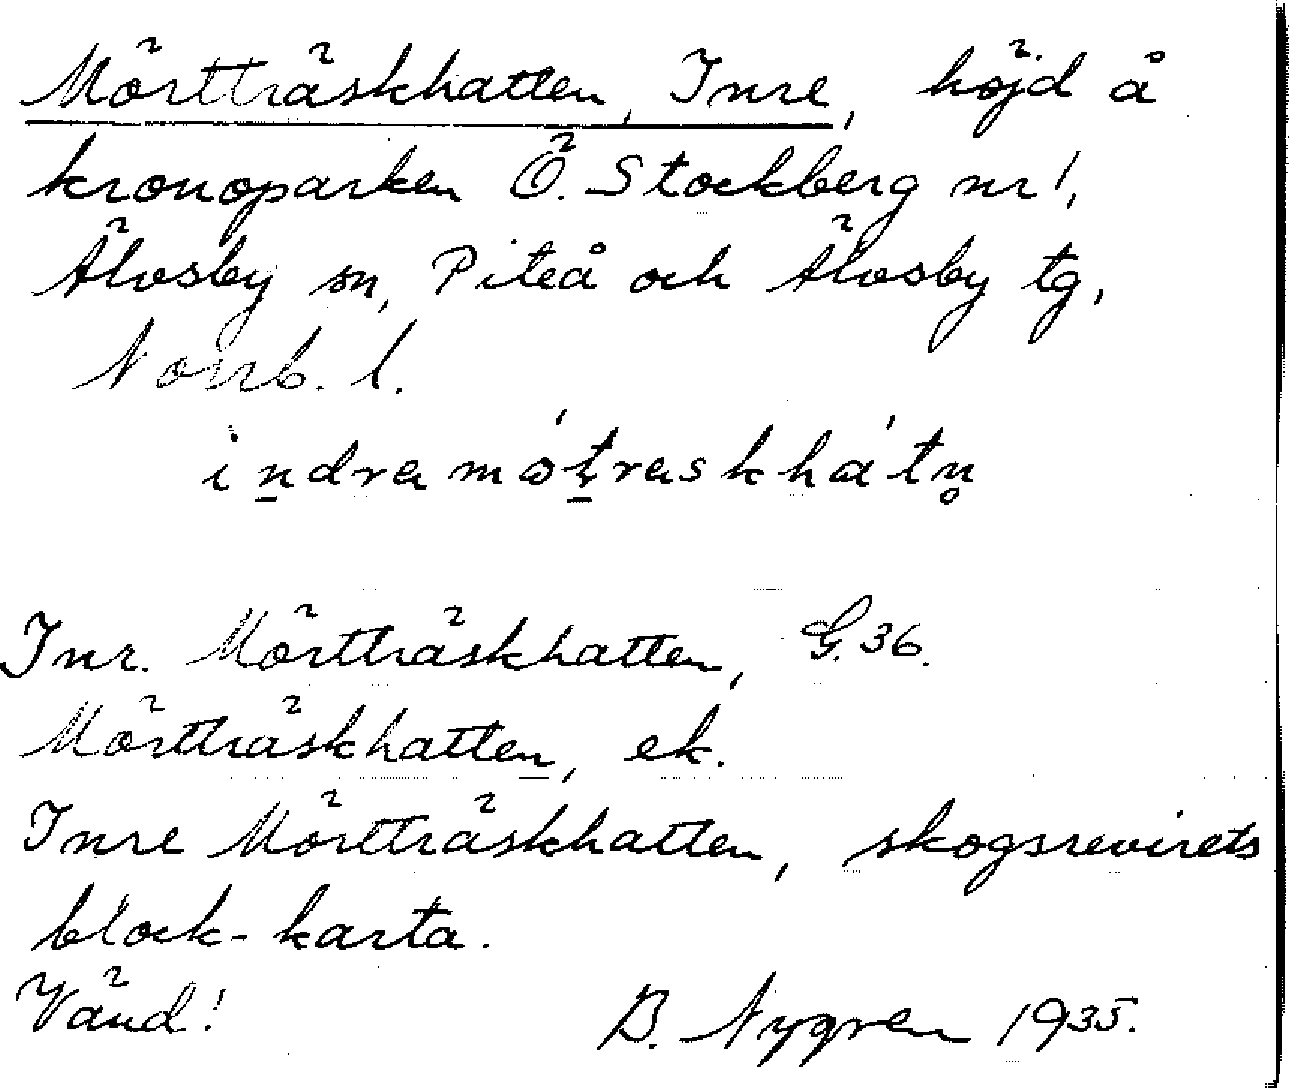 Mörtträskhatten, Inre, höjd å
kronoparken Ö. Stockberg nr 1,
Älvsby sn, Piteå och Älvsby tg,
Norrb. l.
indra mö́t̠raskhát n̥
Inr. Mörtträskhatten, G. 36.
Mörtträskhatten, ek.
Inre Mörtträskhatten, skogsrevirets
block-karta.
Vänd! B. Nygren 1935.